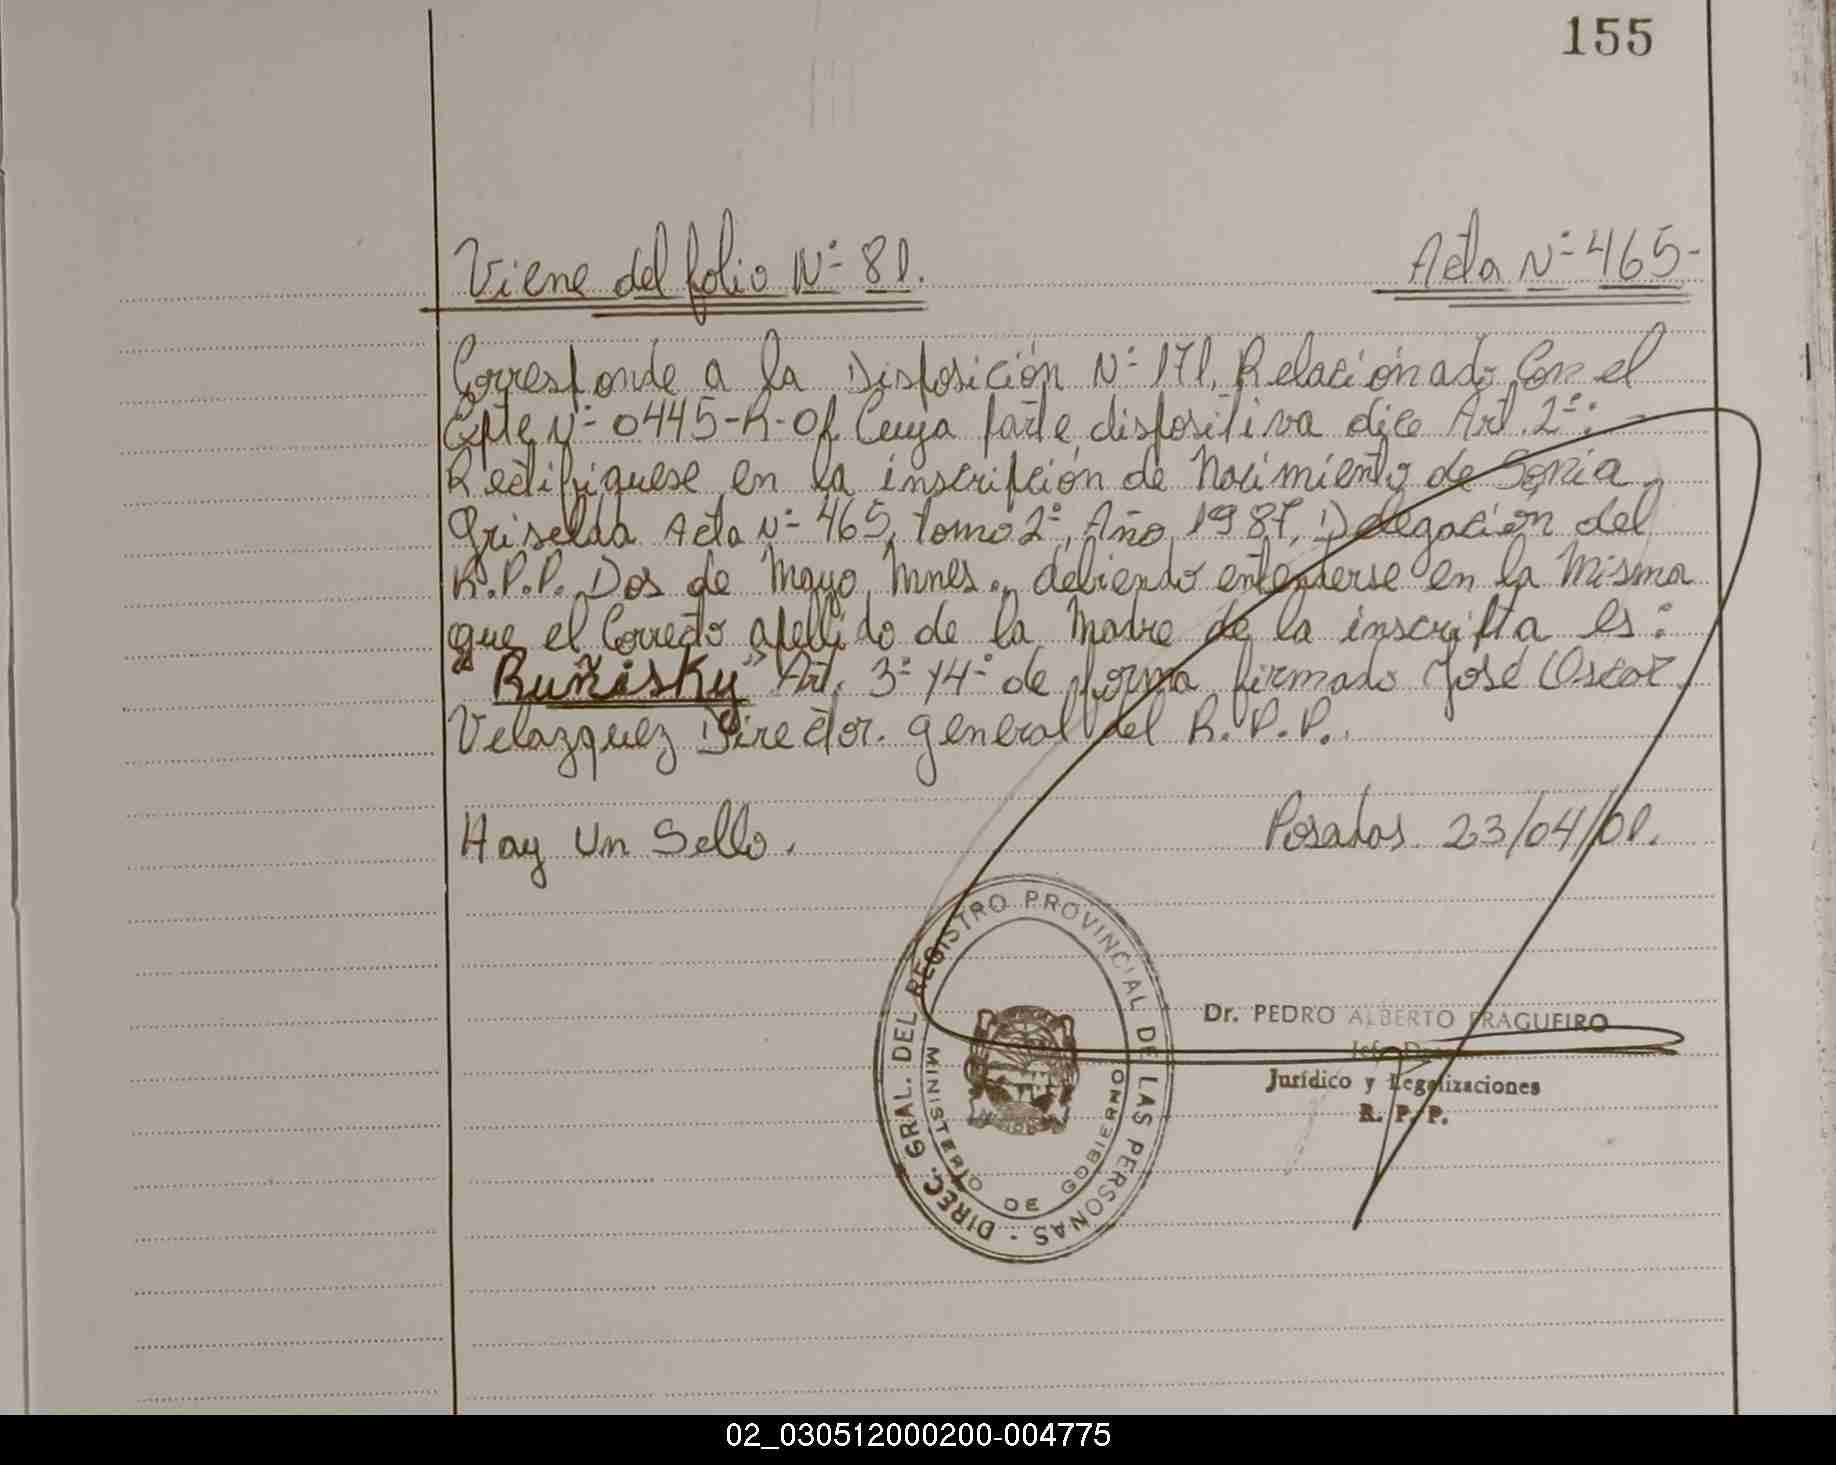 155
Viene del folio Nº 81.
Acta Nº 465-
Corresponde a la Disposición Nº 171, Relacionado Con el
Expte Nº 0445-R-01 Cuya parte dispositiva dice Art. 2º:
Rectifiquese en la inscripción de Nacimiento de Sonia
Griselda Acta Nº 465, tomo 2º, Año 1987, Delegación del
R.P.P. Dos de Mayo, Mnes., debiendo entenderse en la Misma
que el Correcto apellido de la Madre de la inscripta es:
"Ruñisky" Art. 3º y 4º de forma firmado José Oscar
Velazquez Director. general del R.P.P.
Hay Un Sello.
Posadas 23/04/01.
DIREC. GRAL. DEL REGISTRO PROVINCIAL DE LAS PERSONAS -
MINISTERIO DE GOBIERNO
Dr. PEDRO ALBERTO FRAGUEIRO
Jurídico y Legalizaciones
R. P. P.
02_030512000200-004775